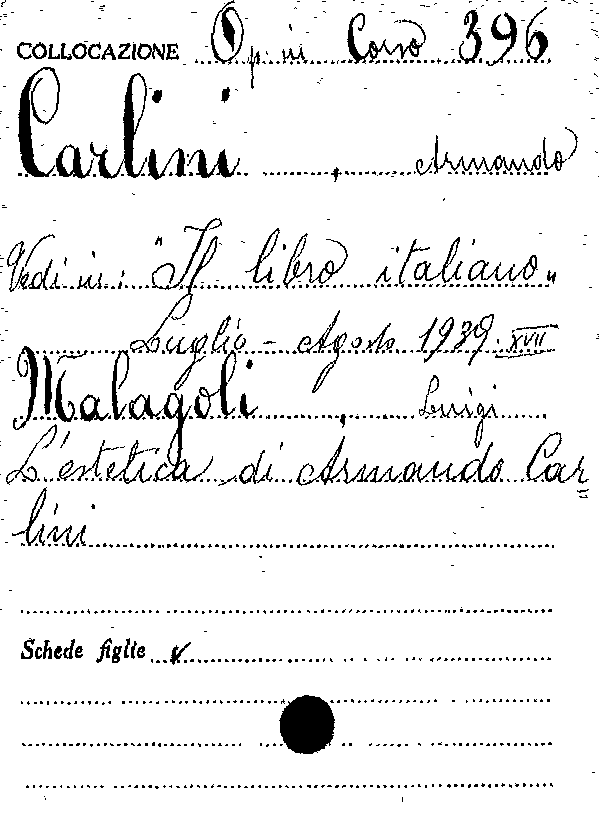 COLLOCAZIONE Op. in Corso 396
Carlini, Armando
Vedi in: "Il libro italiano"
Luglio - Agosto 1939. XVII
Malagoli, Luigi
L'estetica di Armando Car=
lini
Schede figlie v